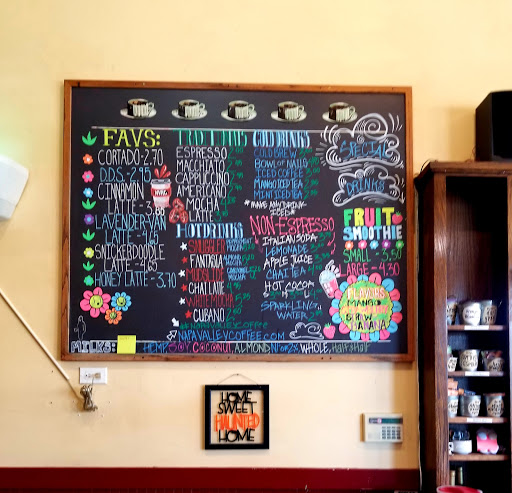 FAVS:
CORTADO-2.70
D.D.S.-2.95
CINNAMON
LATTE-3.88
LAVENDER VAN
LATTE
SNICKERDOODLE
LATTE-3.65
HONEY LATTE-3.70
ESPRESSO
MACCHIATO
CAPPUCCINO
AMERICANO
MOCHA
LATTE
HOT DRINKS
SNUGGLER
FANTASIA
MUDSLIDE
CHAI LATE
WHITE MOCHA
CUBANO
COLD DRINKS
COLD BREW
ICED COFFEE
MANGO ICED TEA
MINT ICED TEA
MAKE ANY DRINK
ICED
NON-ESPRESSO
ITALIAN SODA
LEMONADE
APPLE JUICE
CHAI TEA
HOT COCOA
SPARKLING
WATER
SPECIAL
DRINKS
FRUIT
SMOOTHIE
SMALL-3.50
LARGE-4.30
FLAVORS
MANGO
BANANA
NAPAVALLEYCOFFEE
NAPAVALLEYCOFFEE.COM
MILKS: HEMP SOY COCONUT, ALMOND NONFAT 2% WHOLE, Half & Half
HOME
SWEET
HAUNTED
HOME